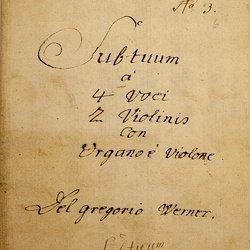 No 3.
Sub tuum
à
4 Voci
2 Violinis
Con
Organo è Violone.
Del gregorio Werner.